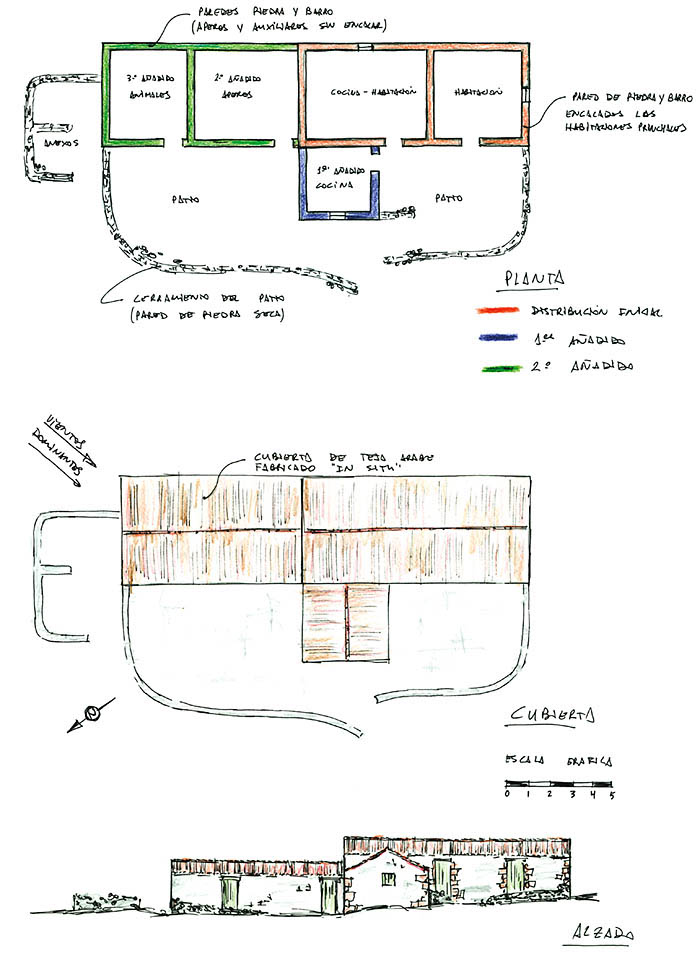 PAREDES PIEDRA Y BARRO
(APEROS Y AUXILIARES SIN ENCALAR)
3º AÑADIDO
ANIMALES
2º AÑADIDO
APEROS
COCINA-HABITACIÓN
HABITACIÓN
PARED DE PIEDRA Y BARRO
ENCALADAS LAS
HABITACIONES PRINCIPALES
ANEXOS
1er AÑADIDO
COCINA
PATIO
PATIO
CERRAMIENTO DEL PATIO
(PARED DE PIEDRA SECA)
PLANTA
DISTRIBUCIÓN INICIAL
1er AÑADIDO
2º AÑADIDO
VIENTOS
DOMINANTES
CUBIERTA DE TEJA ARABE
FABRICADO "IN SITU"
N
CUBIERTA
ESCALA GRAFICA
0 1 2 3 4 5
ALZADO